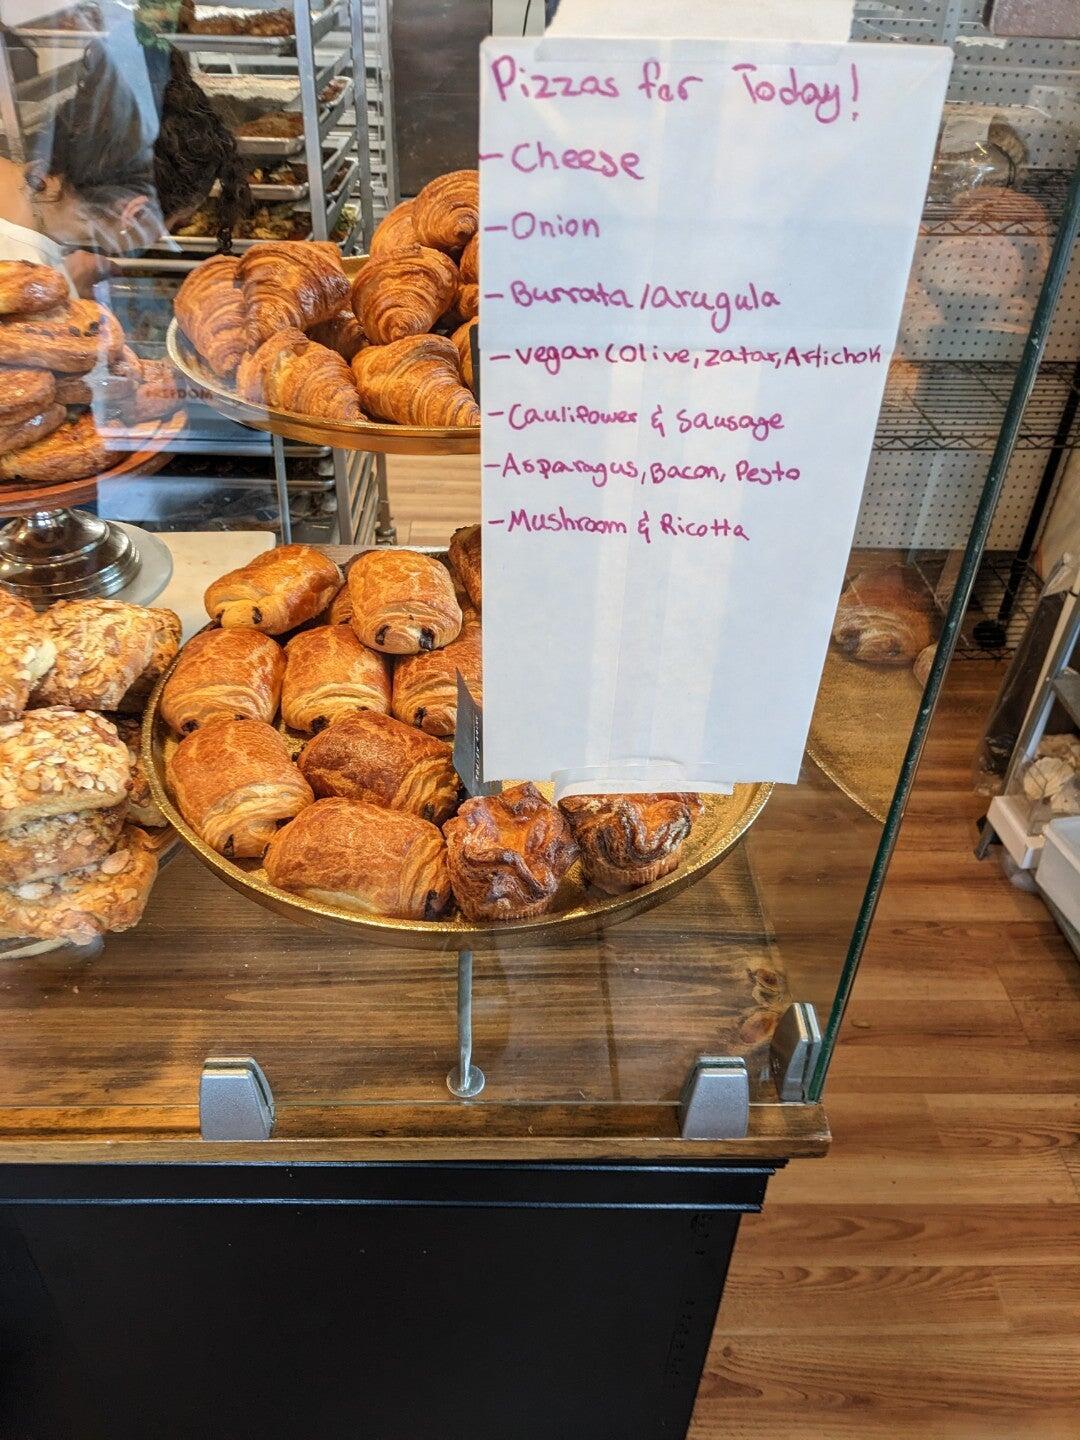 Pizzas for Today!
- Cheese
- Onion
- Burrata/arugula
- vegan (Olive, zatar, Artichok
- Cauliflower & Sausage
- Asparagus, Bacon, Pesto
- Mushroom & Ricotta